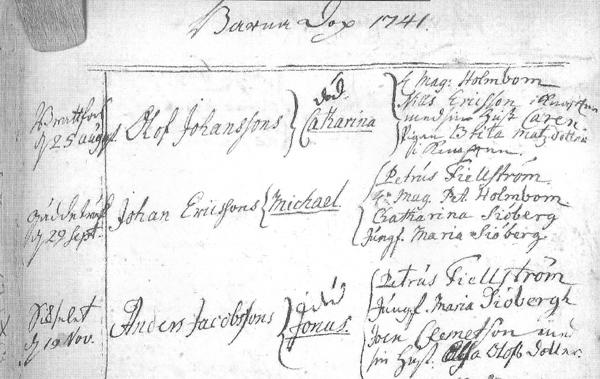 Barna Dop 1741.
Brattfors
d 25 aug. Olof Johanssons
död.
Catharina
H Mag: Holmbom
Nils Ericsson i
med sin Hust. Caren
Pigan Brita Mats Dotter
Johan Ericssons Michael.
d 29 Sept.
Petrus Fiellström
H. Mag. Pet. Holmbom
Catharina Siöberg
Jungf. Maria Siöberg
d 19 Nov. Anders Jacobssons
död
Jonus.
Petrus Fiellström
Jungf. Maria Siöbergh
Joen Clemetsson med
sin Hust. Olofs Dotter.